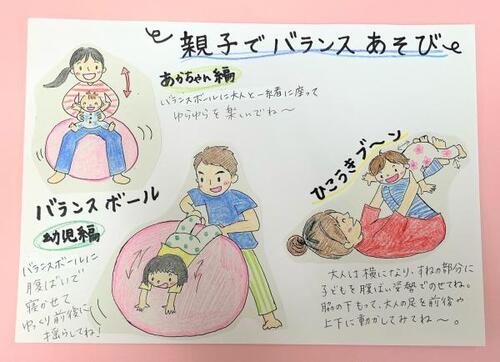 親子でバランスあそび
あかちゃん編
バランスボールに大人と一緒に座って
ゆらゆらを楽しいでね～
バランスボール
幼児編
バランスボールに
腹ばいで
寝かせて
ゆっくり前後に
揺らしてね!
ひこうきブ～ン
大人は横になり、すねの部分に
子どもを腹ばい姿勢でのせてね。
脇の下もって、大人の足を前後や
上下に動かしてみてね～。